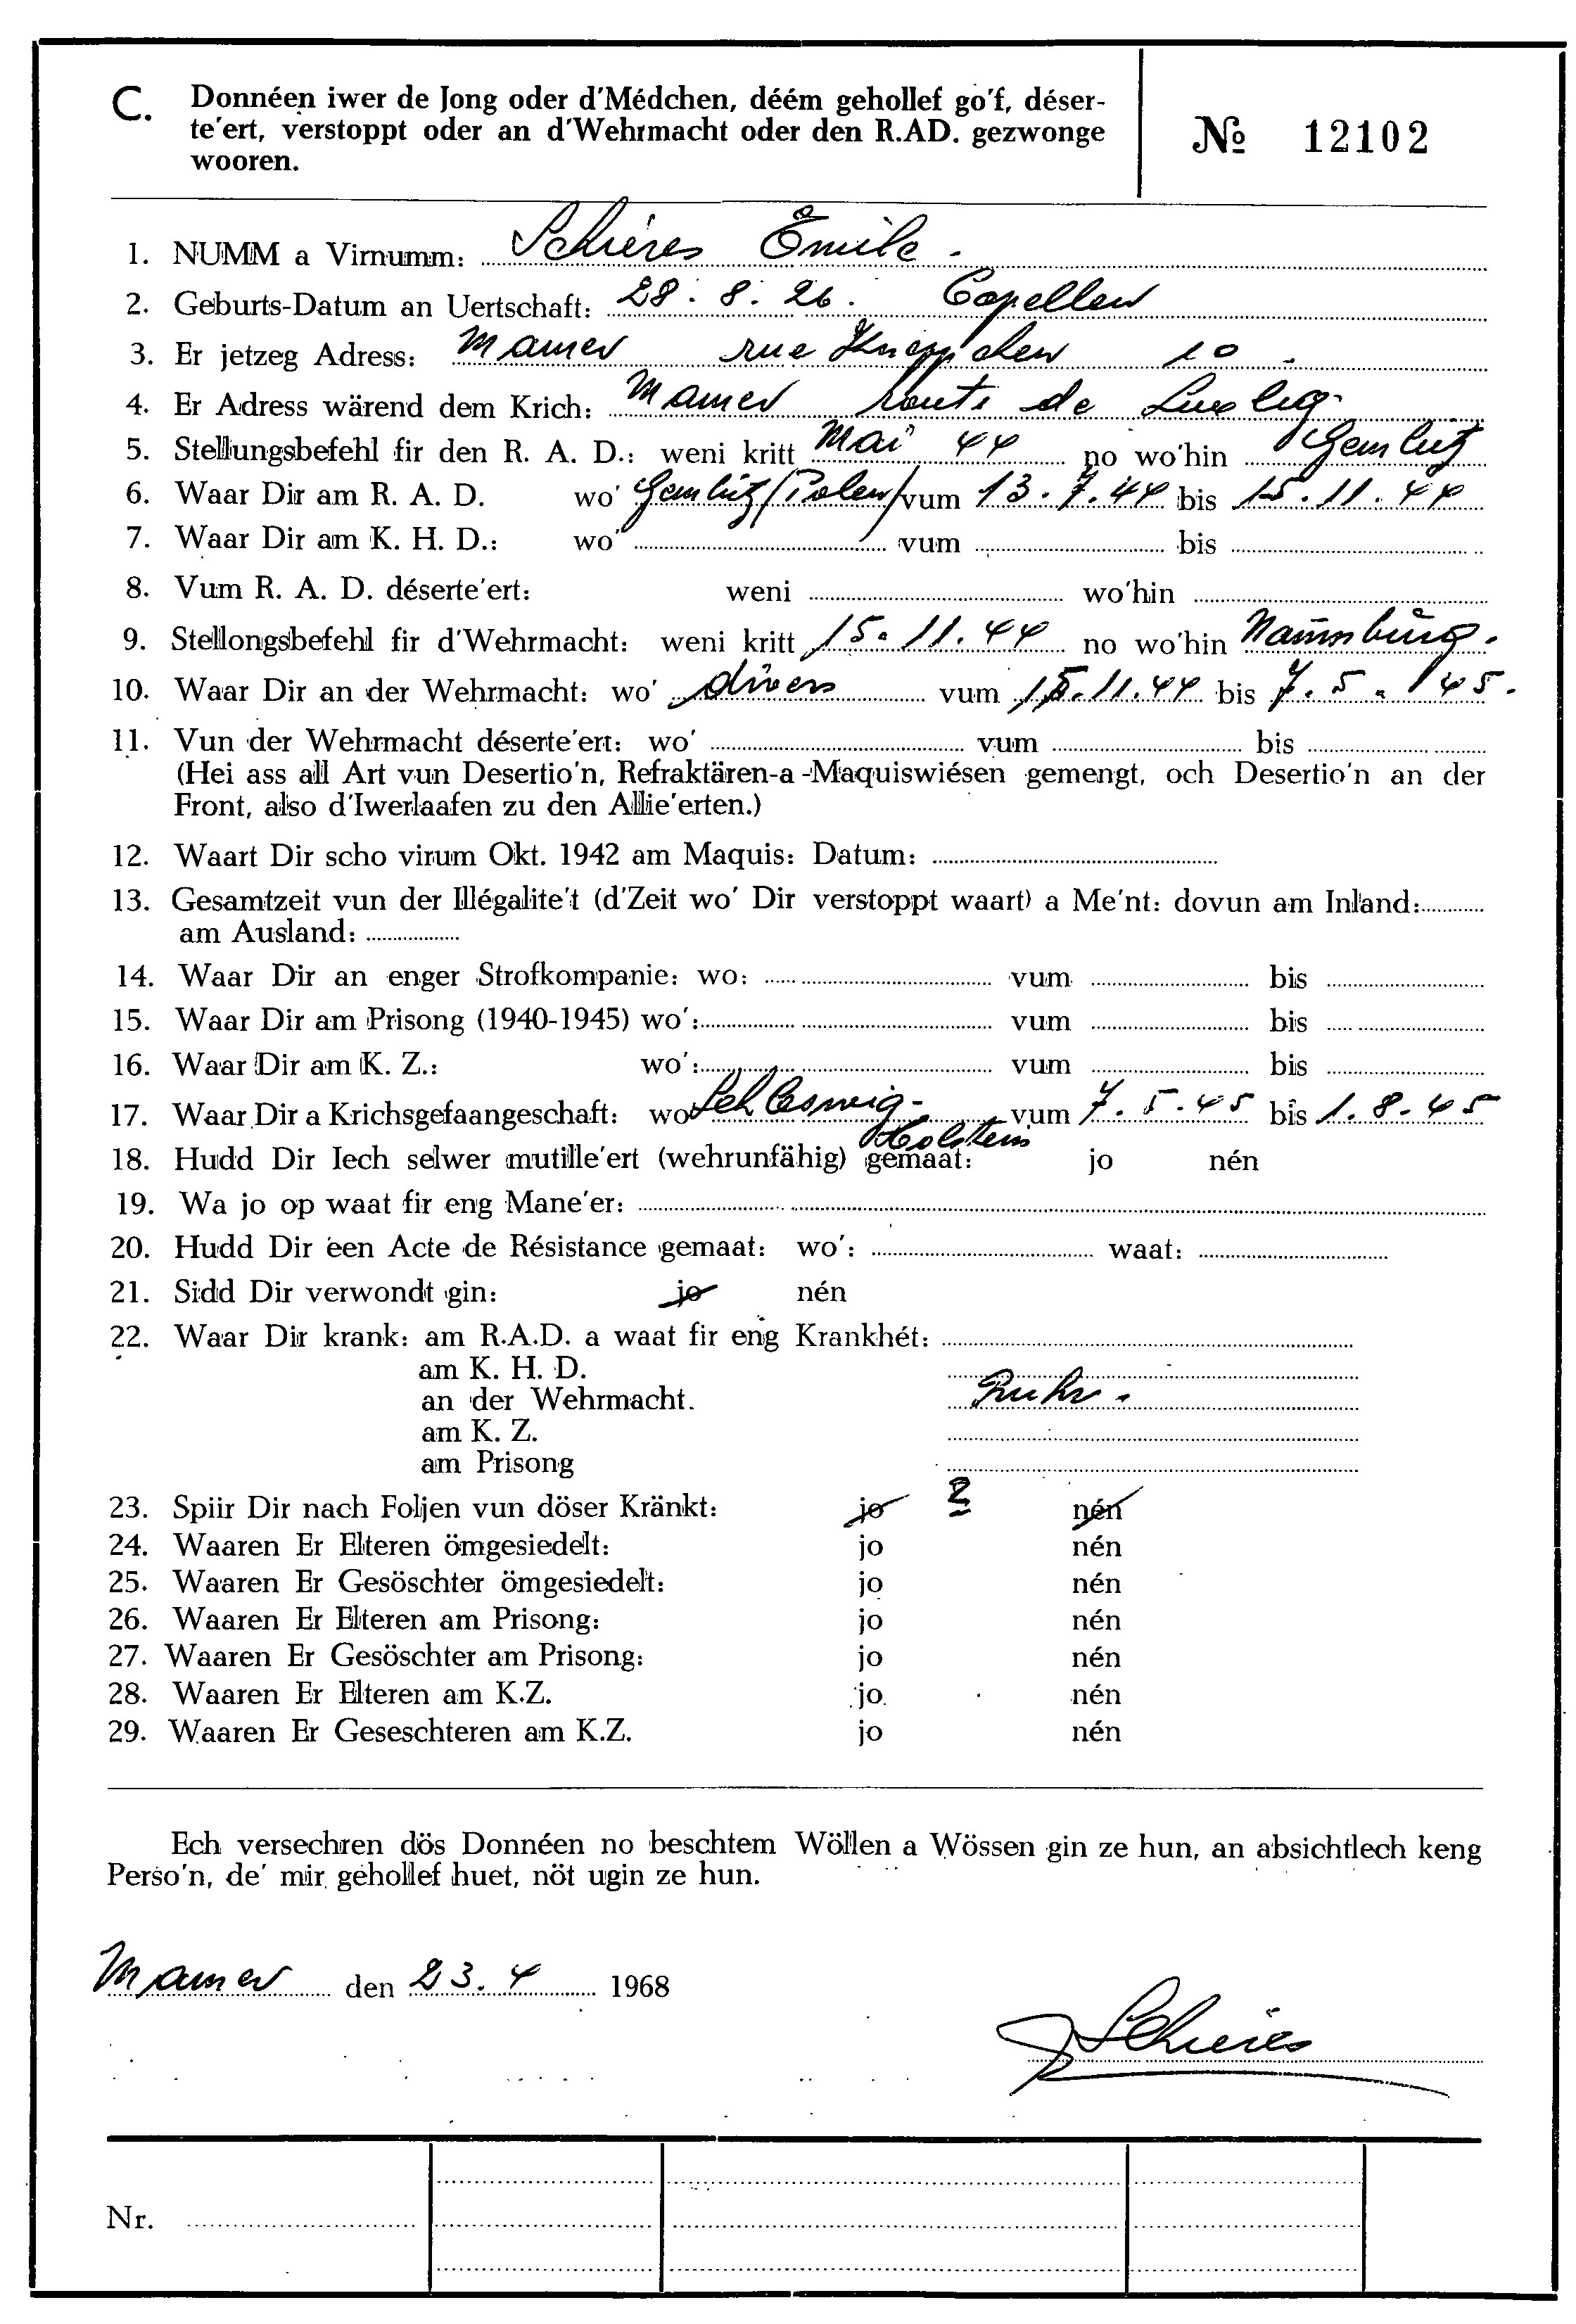 C. Donnéen iwer de Jong oder d'Médchen, déém gehollef go'f, déser-
te'ert, verstoppt oder an d'Wehrmacht oder den R.AD. gezwonge
wooren.
№ 12102
1. NUMM a Virnumm: Schieres Émile.
2. Geburts-Datum an Uertschaft: 28.8.26. Capellen
3. Er jetzeg Adress: Mamer rue Knäppchen 10.
4. Er Adress wärend dem Krich: Mamer route de Luxbg.
5. Stellungsbefehl fir den R. A. D.: weni kritt Mai 44 no wo'hin Gembitz
6. Waar Dir am R. A. D. wo' Gembitz (Polen) vum 13.7.44 bis 15.11.44
7. Waar Dir am K. H. D.: wo' vum bis
8. Vum R. A. D. déserte'ert: weni wo'hin
9. Stellongsbefehl fir d'Wehrmacht: weni kritt 15.11.44 no wo'hin Naumburg.
10. Waar Dir an der Wehrmacht: wo' divers vum 15.11.44 bis 7.5.45.
11. Vun der Wehrmacht déserte'ert: wo' vum bis
(Hei ass all Art vun Desertio'n, Refraktären-a-Maquiswiésen gemengt, och Desertio'n an der
Front, also d'Iwerlaafen zu den Allie'erten.)
12. Waart Dir scho virum Okt. 1942 am Maquis: Datum:
13. Gesamtzeit vun der Illégalite't (d'Zeit wo' Dir verstoppt waart) a Me'nt: dovun am Inland:
am Ausland:
14. Waar Dir an enger Strofkompanie: wo: vum bis
15. Waar Dir am Prisong (1940-1945) wo': vum bis
16. Waar Dir am K. Z.: wo': vum bis
17. Waar Dir a Krichsgefaangeschaft: wo Schleswig- vum 7.5.45 bis 1.8.45
Holstein
18. Hudd Dir Iech selwer mutille'ert (wehrunfähig) gemaat: jo nén
19. Wa jo op waat fir eng Mane'er:
20. Hudd Dir een Acte de Résistance gemaat: wo': waat:
21. Sidd Dir verwondt gin: jo nén
22. Waar Dir krank: am R.A.D. a waat fir eng Krankhét:
am K. H. D.
an der Wehrmacht. Ruhr.
am K. Z.
am Prisong
23. Spiir Dir nach Foljen vun döser Kränkt: jo ? nén
24. Waaren Er Elteren ömgesiedelt: jo nén
25. Waaren Er Gesöschter ömgesiedelt: jo nén
26. Waaren Er Elteren am Prisong: jo nén
27. Waaren Er Gesöschter am Prisong: jo nén
28. Waaren Er Elteren am K.Z. jo nén
29. Waaren Er Geseschteren am K.Z. jo nén
Ech versechren dös Donnéen no beschtem Wöllen a Wössen gin ze hun, an absichtlech keng
Perso'n, de' mir gehollef huet, nöt ugin ze hun.
Mamer den 23.4 1968
Schieres
Nr.